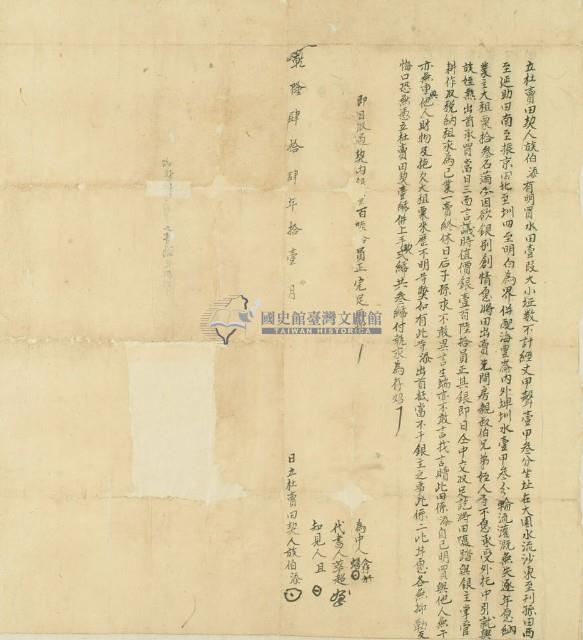 立杜賣田契人族伯添有明買水田壹段大小坵數不計經丈甲聲壹甲叁分坐址在大圳水流沙東至刊孫田西
至延助田南至振京田北至圳四至明白為界併配海豊崙內外埤圳水壹甲叁分輪流灌溉無失逐年愿納
業主大租粟拾叁石滿今因欲銀別創情愿將田出賣先問房親叔伯兄弟侄人等不愿承受外托中引就與
族姪 出首承買當日三面言議時值價銀壹百陸拾員正其銀即日仝中交收足訖將田隨踏與銀主掌管
耕作及税納租永為己業一賣終休日后子孫永不敢異言生端亦不敢言找言贖此田係添自己明買與他人無干
亦無重典他人財物及拖欠大租粟來歷不明等獘如有此等添出首抵當不干銀主之事此係二比甘愿各無抑勒反
悔口恐無憑立杜賣田契壹紙併上手契貳紙共叁紙付執永為存炤
即日收過契內 壹百陸拾員正完足
乾隆肆拾肆年拾壹月
為中人
代書人 超
知見人
日立杜賣田契人族伯添
國史館臺灣文獻館
TAIWAN HISTORICA